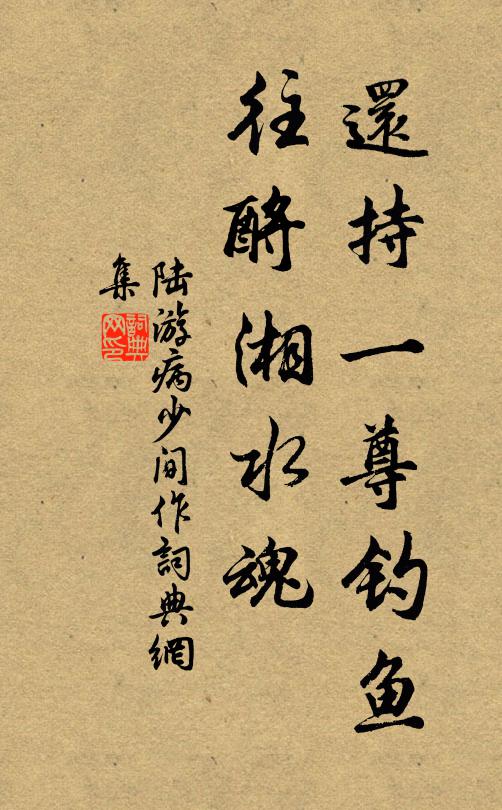 還持一尊钓鱼
往酹湘水魂
陆游病少间作詞典網
集
詞典网印